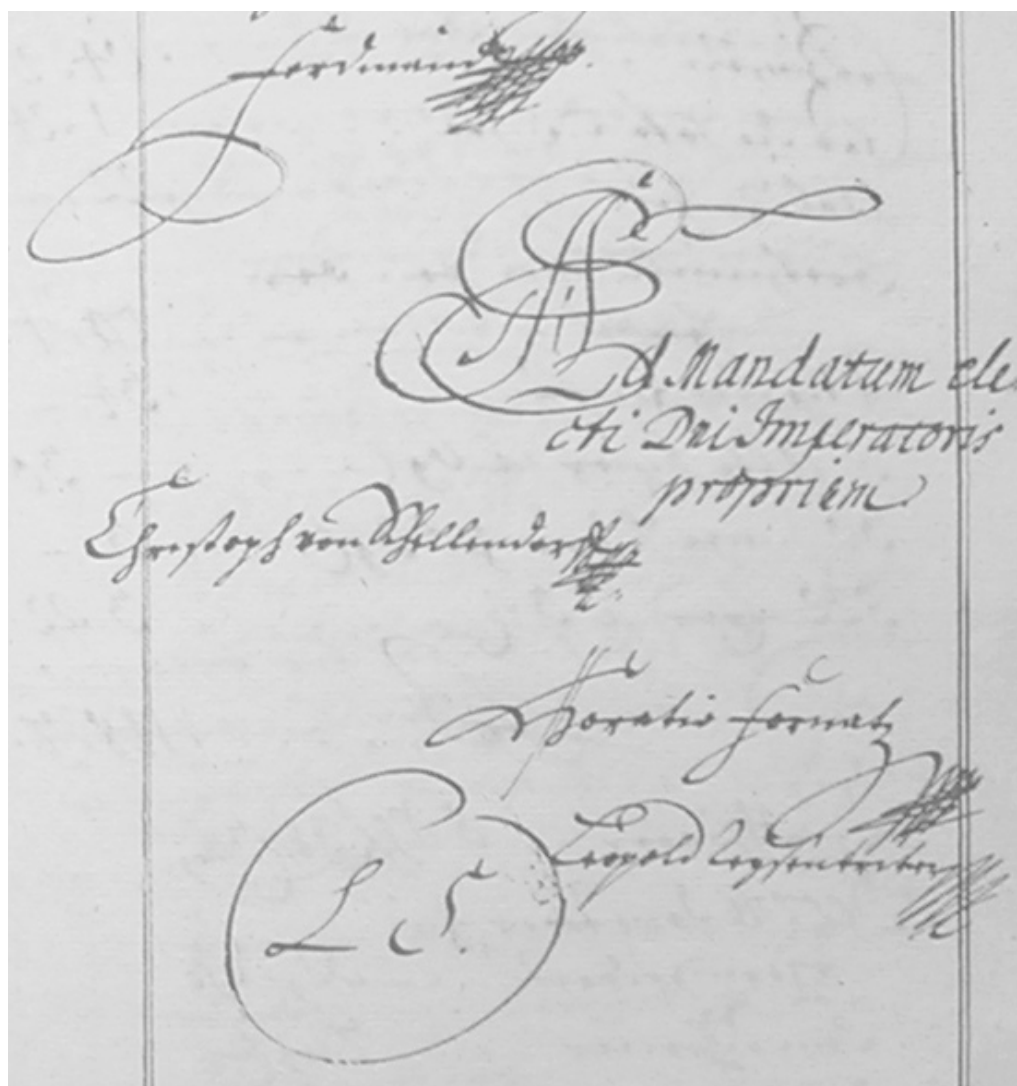 Ferdinand
Ad Mandatum ele
cti Dni Imperatoris
proprium
Christoph von Schellendorff
Horatio Fornatz
Leopold
L S.